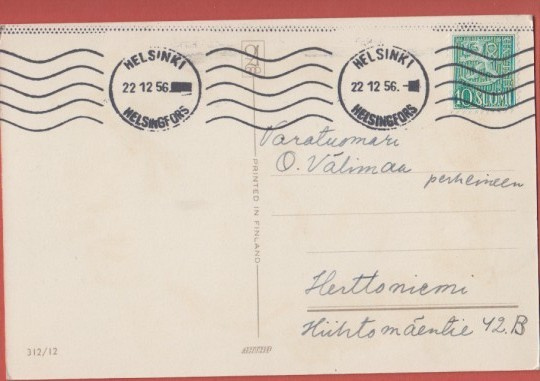 HELSINKI
22 12 56
HELSINGFORS
HELSINKI
22 12 56.-
HELSINGFORS
10 SUOMI
Varatuomari
O. Välimaa
perheineen
PRINTED IN FINLAND
Herttoniemi
Hiihtomäentie 42.B
312/12